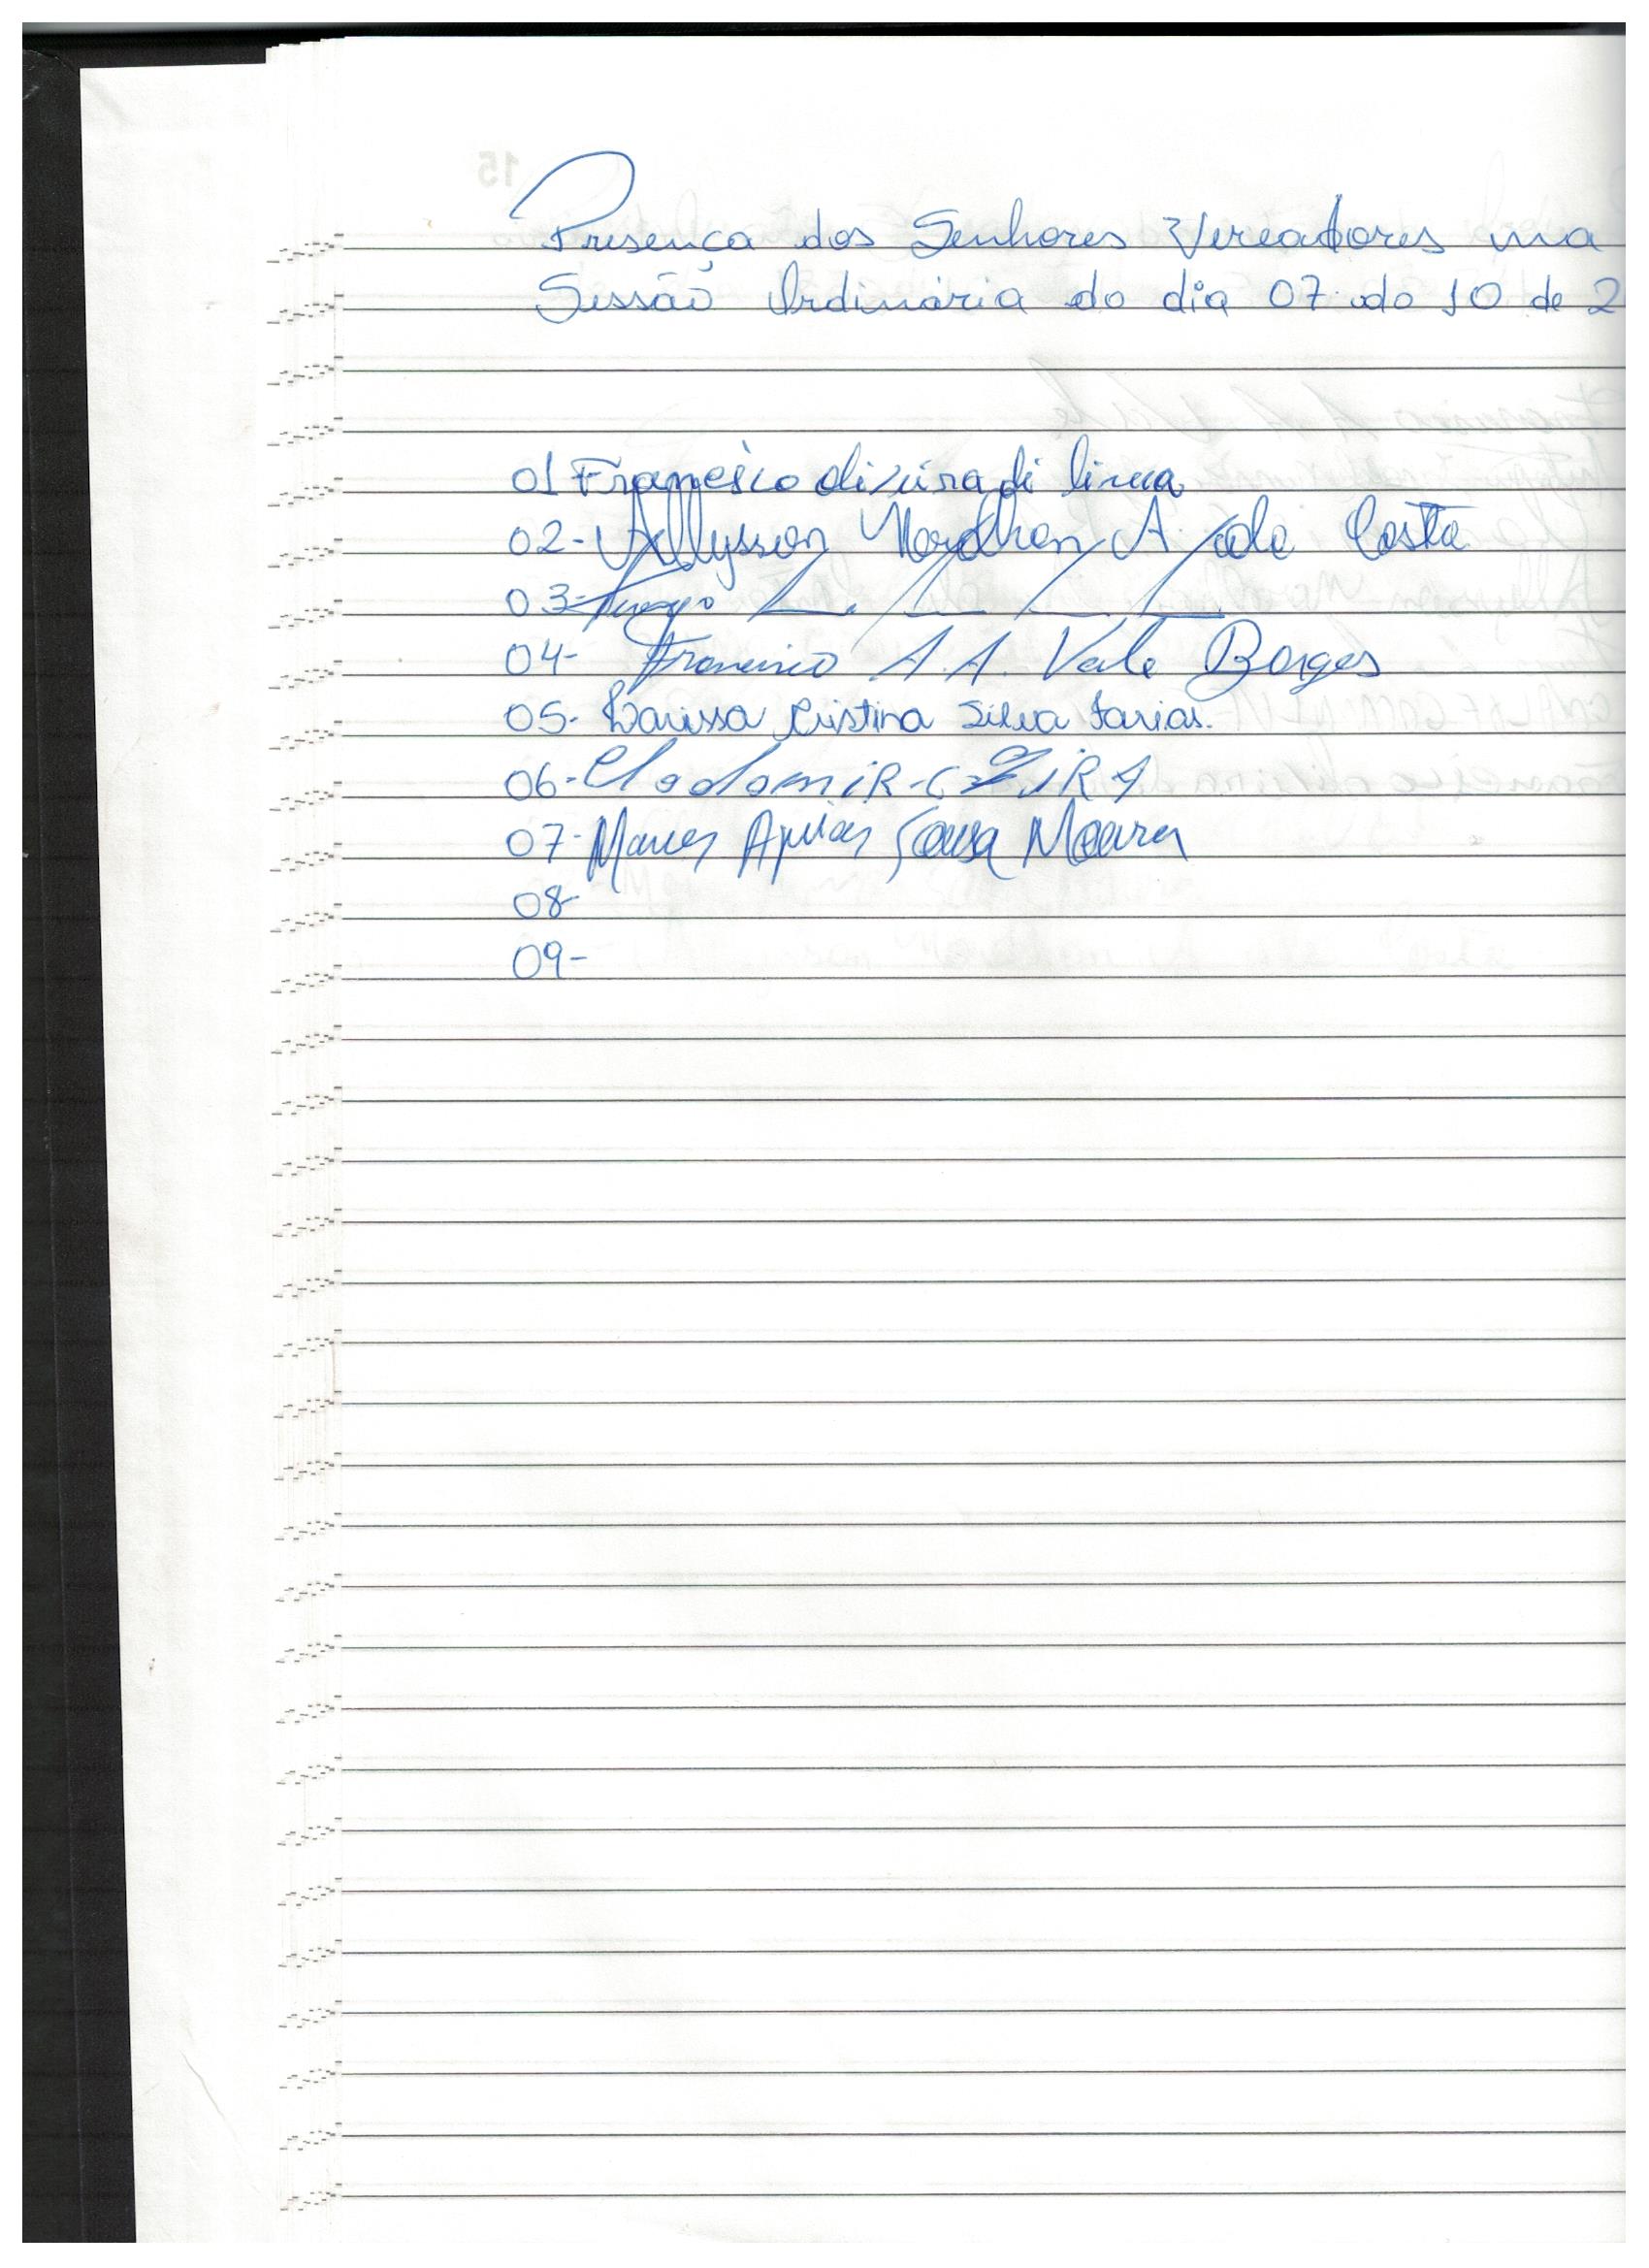 Presença dos Senhores Vereadores na
Sessão Ordinária do dia 07 do 10 de 2
01 Francisco oliveira di lima
02- Allysson Nordhon A. da Costa
03-
04- Francisco A. A. Vale Borges
05- Larissa Cristina Silva Farias.
06- ClodomiR
07- Sousa Moura
08-
09-